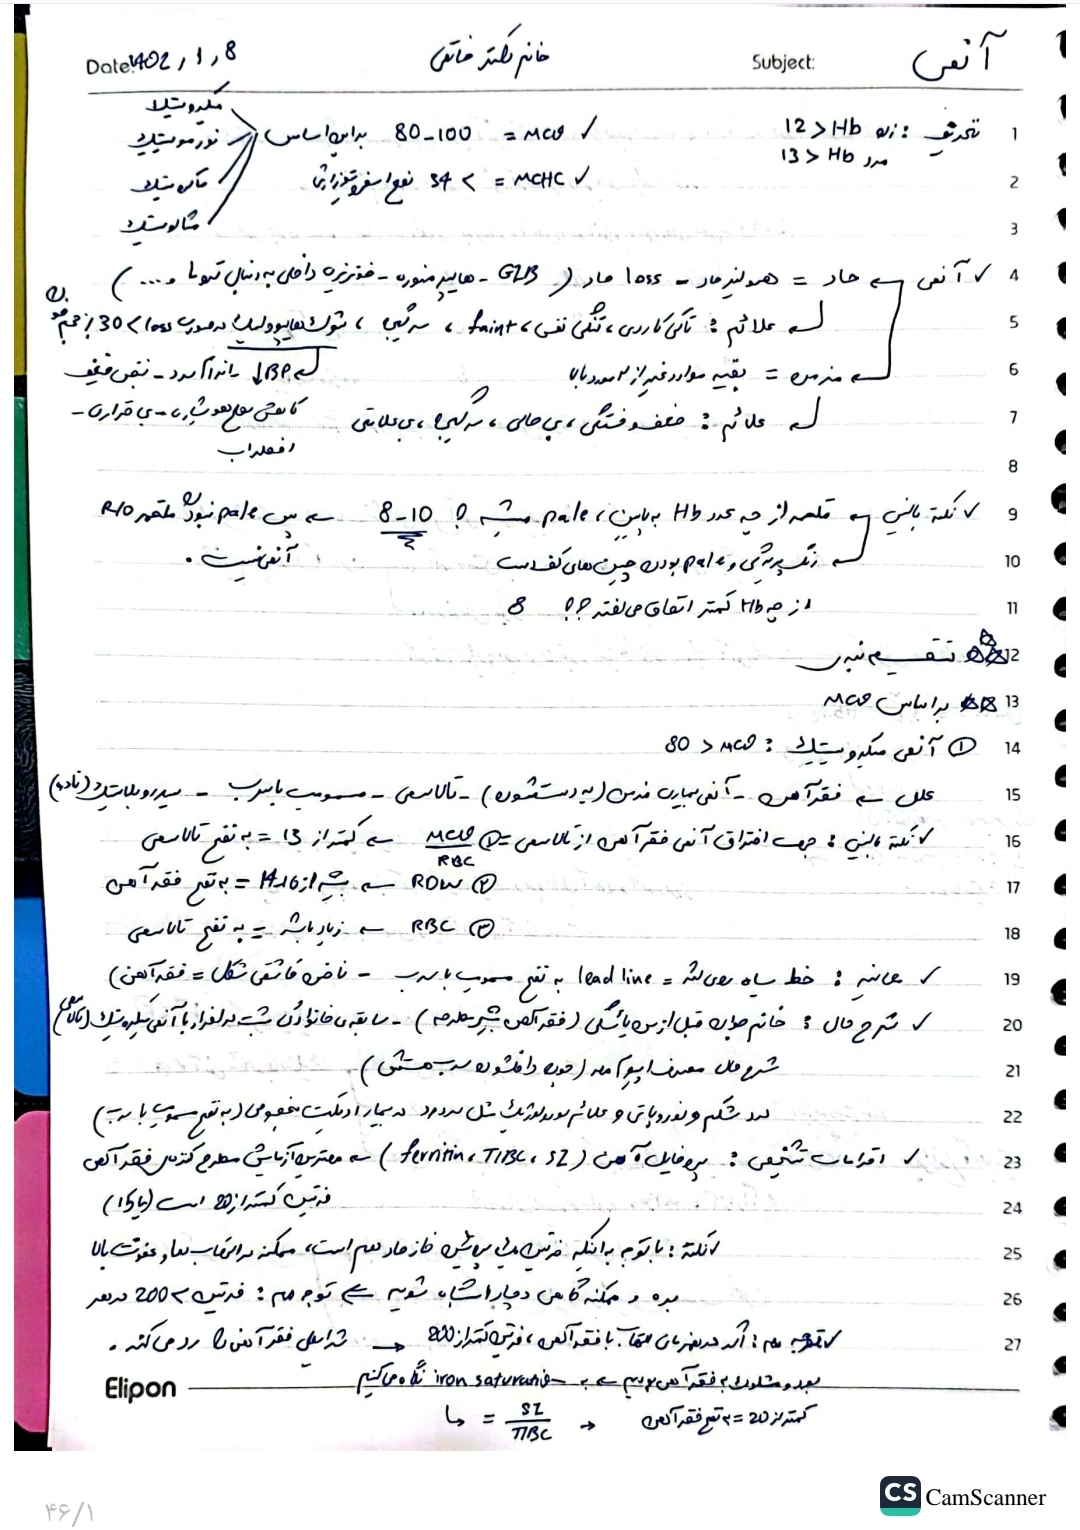 آنمی
Subject:
خانم دکتر
Date: 1402 / 1 / 8
1
تعریف : زن Hb < 12
مرد Hb < 13
✓ MCV = 80-100 براین اساس
میکروسیتیک
نورموسیتیک
ماکروسیتیک
2
✓ MCHC = > 34 نفع اسفروسیتوز ارثی
3
4 ✓ آنمی ← حاد = همولیز حاد - loss حاد ( GIB - هایپرمنوره - خونریزی داخلی به دنبال تروما و ... )
5 علائم : تاکی کاردی ، تنگی نفس ، faint ، سرگیجه ، شوک هایپوولمیک درصورت loss > 30٪ حجم خون
6 مزمن = بقیه موارد غیر از 2 مورد بالا
↓BP
7 علائم : ضعف و خستگی ، بی حالی ، سرگیجه ، بی علامتی
کاهش سطح هوشیاری - بی قراری -
اضطراب
8
9 ✓ نکته بالینی ← ملتحمه از چه عدد Hb به پایین ، pale میشه ؟ 8-10 ← پس pale نبودن ملتحمه R/O
10 رنگ پریدگی و pale بودن چین های کف دست
آنمی نیست .
11 از چه Hb کمتر اتفاق می افتد ؟؟ 8
12 تقسیم بندی
13 براساس MCV
14 ① آنمی میکروسیتیک : MCV < 80
15 علل ← فقر آهن - آنمی بیماری مزمن ( ) - تالاسمی - مسمومیت با سرب - سیدروبلاستیک (نادر)
16 ✓ نکته بالینی : جهت افتراق آنمی فقر آهن از تالاسمی = ① MCV/RBC ← کمتر از 13 = به نفع تالاسمی
17 ② RDW ← بیشتر از 14-16 = به نفع فقر آهن
18 ③ RBC ← زیاد باشد = به نفع تالاسمی
19 ✓ معاینه : خط سیاه روی لثه = lead line به نفع مسمومیت با سرب - ناخن قاشقی شکل = فقر آهن)
20 ✓ شرح حال : خانم جوان قبل از سن یائسگی (فقر آهن بیشتر مطرحه) - سابقه ی خانوادگی مثبت در افراد با آنمی میکروسیتیک (تالاسمی)
21 شرح حال مصرف اپیوم ها (چون داخلشون سرب هستش)
22 درد شکم و نوروپاتی و علائم نورولوژیک مثل سردرد در بیمار ادیکت بخصوص (به نفع مسمومیت با سرب)
23 ✓ اقدامات تشخیصی : پروفایل آهن ( ferritin ، TIBC ، SI ) ← مهمترین آزمایش مطرح کننده ی فقر آهن
24 فریتین کمتر از 20 است (یا 15)
25 ✓ نکته : با توجه به اینکه فریتین یکی پروتئین فاز حاد هم است ، ممکنه در التهاب ها و عفونت بالا
26 بره و ممکنه گاهی دچار اشتباه شویم ← توجه مهم : فریتین > 200 در هر
27 شرایطی فقر آهن را رد می کند . ← ✓ توجه مهم : اگر همزمان التهاب با فقر آهن ، فریتین کمتر از 200
بود و مشکوک به فقر آهن بودیم ← به iron saturation نگاه می کنیم
Elipon
کمتر از 20 = به نفع فقر آهن ← = SI/TIBC
۴۶/۱
CS CamScanner